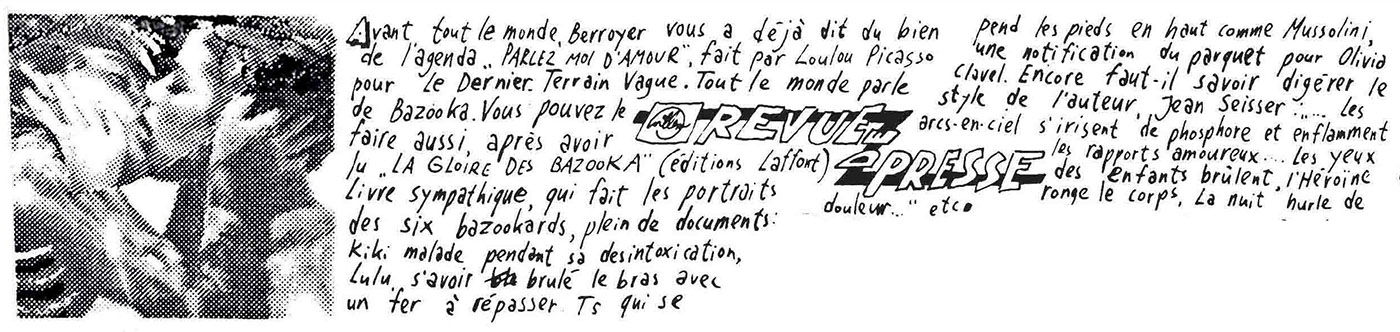 Avant tout le monde, Berroyer vous a déjà dit du bien
de l'agenda „PARLEZ MOI D'AMOUR", fait par Loulou Picasso
pour le Dernier Terrain Vague. Tout le monde parle
de Bazooka. Vous pouvez le
faire aussi, après avoir
lu „LA GLOIRE DES BAZOOKA" (éditions Laffont)
Livre sympathique, qui fait les portraits
des six bazookards, plein de documents:
Kiki malade pendant sa desintoxication,
Lulu s'avoir brulé le bras avec
un fer à répasser. Ts qui se
REVUE
PRESSE
pend les pieds en haut comme Mussolini,
une notification du parquet pour Olivia
Clavel. Encore faut-il savoir digérer le
style de l'auteur, Jean Seisser: „... Les
arcs-en-ciel s'irisent de phosphore et enflamment
les rapports amoureux.... Les yeux
des enfants brûlent, l'Héroïne
ronge le corps, La nuit hurle de
douleur..." etc.